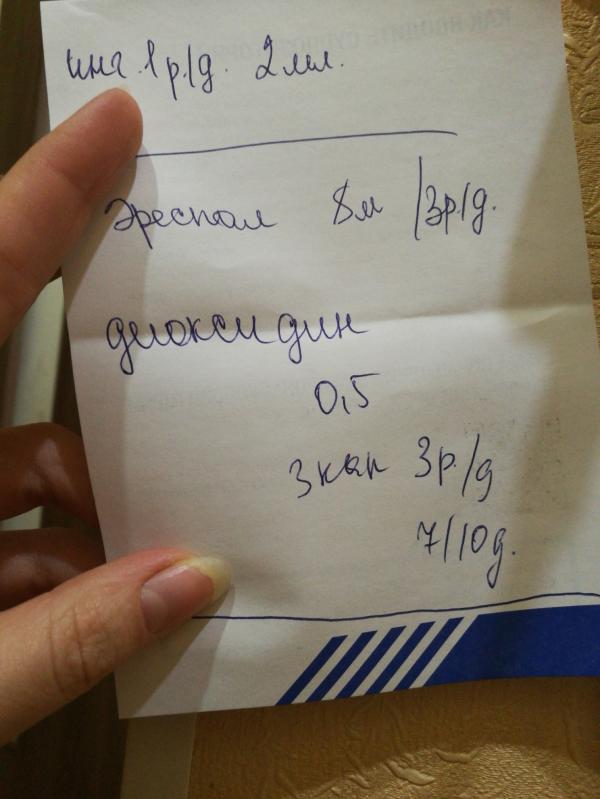 инг. 1 р/д. 2 мл.
Эреспал 8 м /3р/д.
диоксидин
0,5
3 кап 3р./д
7/10 д.